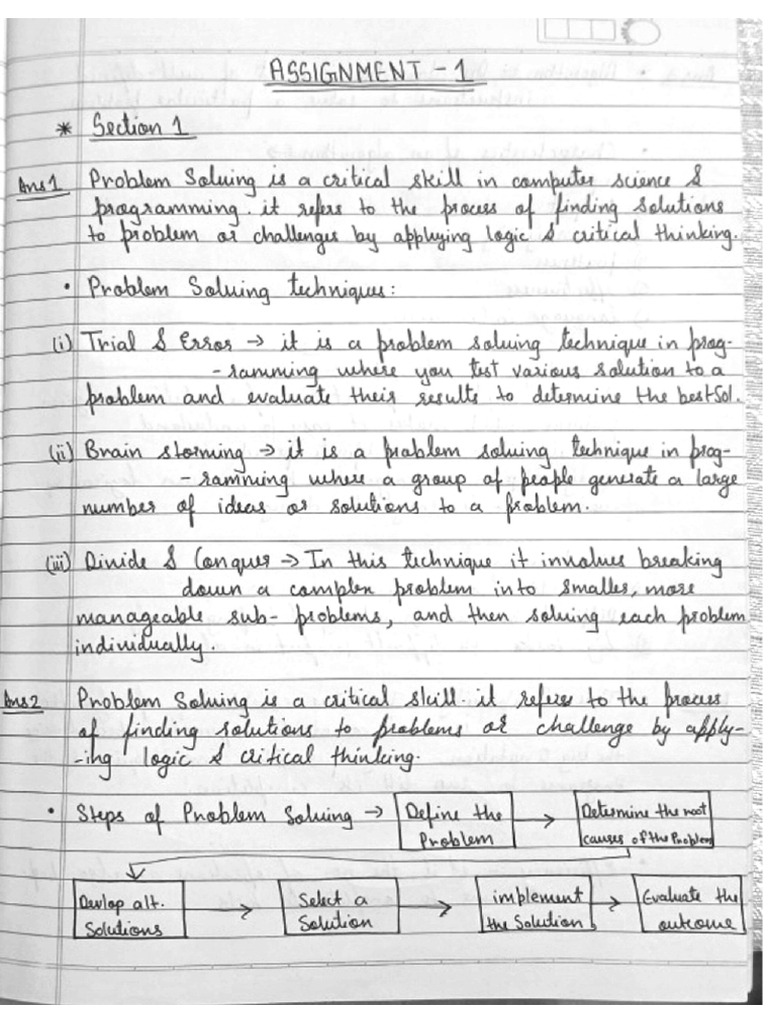 ASSIGNMENT - 1
* Section 1
Ans 1 Problem Solving is a critical skill in computer science &
programming. it refers to the process of finding solutions
to problem or challenges by applying logic & critical thinking.
• Problem Solving techniques:
(i) Trial & Error → it is a problem solving technique in prog-
-ramming where you test various solution to a
problem and evaluate their results to determine the best sol.
(ii) Brain storming → it is a problem solving technique in prog-
-ramming where a group of people generate a large
number of ideas or solutions to a problem.
(iii) Divide & Conquer → In this technique it involves breaking
down a complex problem into smaller, more
manageable sub-problems, and then solving each problem
individually.
Ans 2 Problem Solving is a critical skill. it refers to the process
of finding solutions to problems or challenge by apply-
-ing logic & critical thinking.
• Steps of Problem Solving → Define the → Determine the root
Problem causes of the Problem
Devlop alt. → Select a → implement → Evaluate the
Solutions Solution the Solution outcome